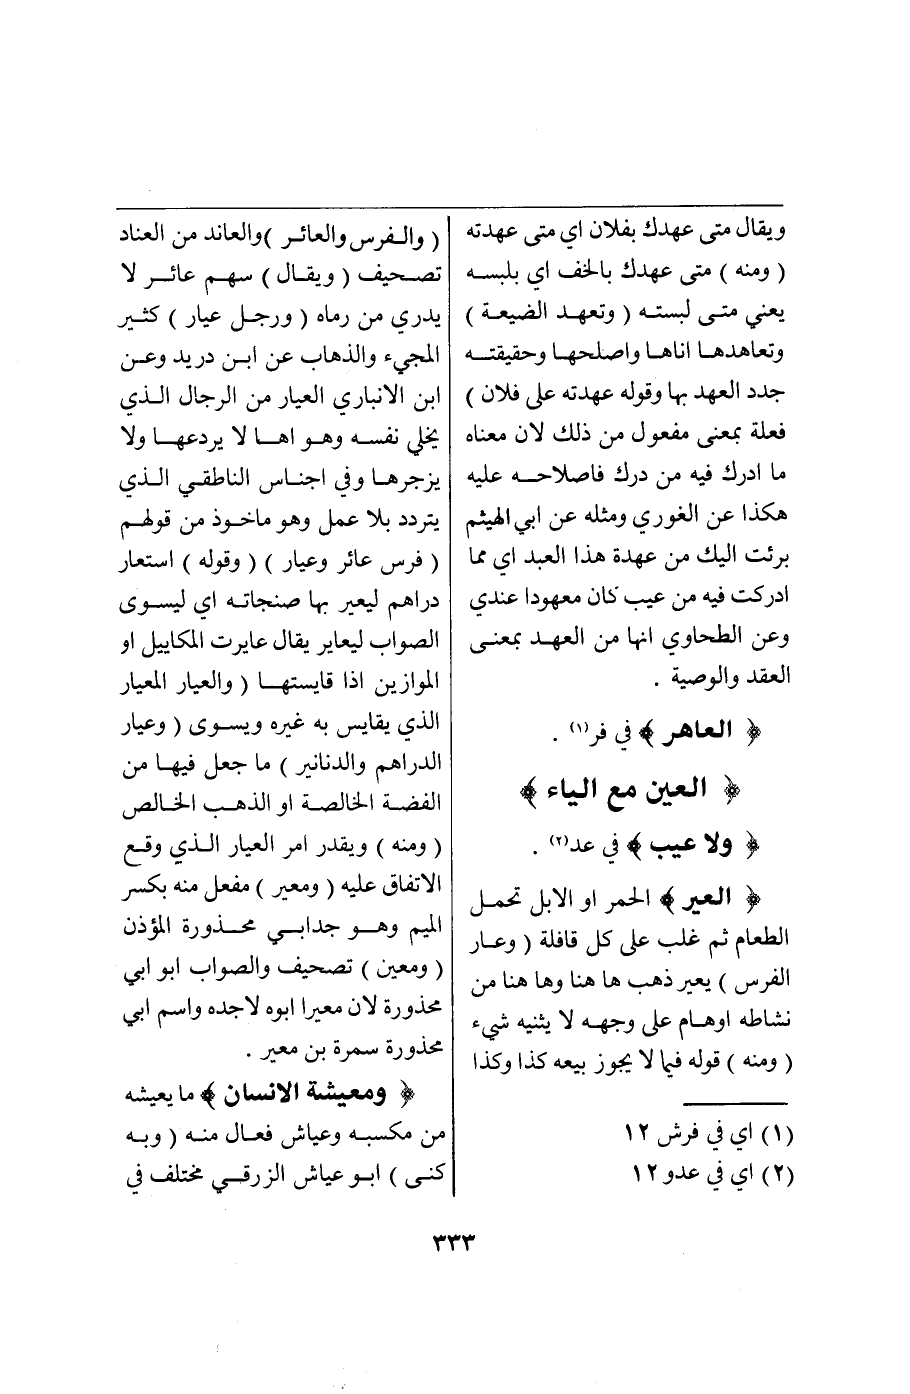 ويقال متى عهدك بفلان اي متى عهدته
( ومنه ) متى عهدك بالخف اي بلبسه
يعني متى لبسته ( وتعهد الضيعة )
وتعاهدها اتاها واصلحها وحقيقته
جدد العهد بها وقوله عهدته على فلان )
فعلة بمعنى مفعول من ذلك لان معناه
ما ادرك فيه من درك فاصلاحه عليه
هكذا عن الغوري ومثله عن ابي الهيثم
برئت اليك من عهدة هذا العبد اي مما
ادركت فيه من عيب كان معهودا عندي
وعن الطحاوي انها من العهد بمعنى
العقد والوصية .
﴿ العاهر ﴾ في فر(١) .
﴿ العين مع الياء ﴾
﴿ ولا عيب ﴾ في عد(٢) .
﴿ العير ﴾ الحمر او الابل تحمل
الطعام ثم غلب على كل قافلة ( وعار
الفرس ) يعير ذهب ها هنا وها هنا من
نشاطه اوهام على وجهه لا يثنيه شيء
( ومنه ) قوله فيما لا يجوز بيعه كذا وكذا
(١) اي في فرش ١٢
(٢) اي في عدو ١٢
( والفرس والعائر )والعاند من العناد
تصحيف ( ويقال ) سهم عائر لا
يدري من رماه ( ورجل عيار ) كثير
المجيء والذهاب عن ابن دريد وعن
ابن الانباري العيار من الرجال الذي
يخلي نفسه وهو اها لا يردعها ولا
يزجرها وفي اجناس الناطقي الذي
يتردد بلا عمل وهو ماخوذ من قولهم
( فرس عائر وعيار ) ( وقوله ) استعار
دراهم ليعير بها صنجاته اي ليسوى
الصواب ليعاير يقال عايرت المكاييل او
الموازين اذا قايستها ( والعيار المعيار
الذي يقايس به غيره ويسوى ( وعيار
الدراهم والدنانير ) ما جعل فيها من
الفضة الخالصة او الذهب الخالص
( ومنه ) ويقدر امر العيار الذي وقع
الاتفاق عليه ( ومعير ) مفعل منه بكسر
الميم وهو جدابي محذورة المؤذن
( ومعين ) تصحيف والصواب ابو ابي
محذورة لان معيرا ابوه لاجده واسم ابي
محذورة سمرة بن معير .
﴿ ومعيشة الانسان ﴾ ما يعيشه
من مكسبه وعياش فعال منه ( وبه
كنى ) ابو عياش الزرقي مختلف في
٣٣٣